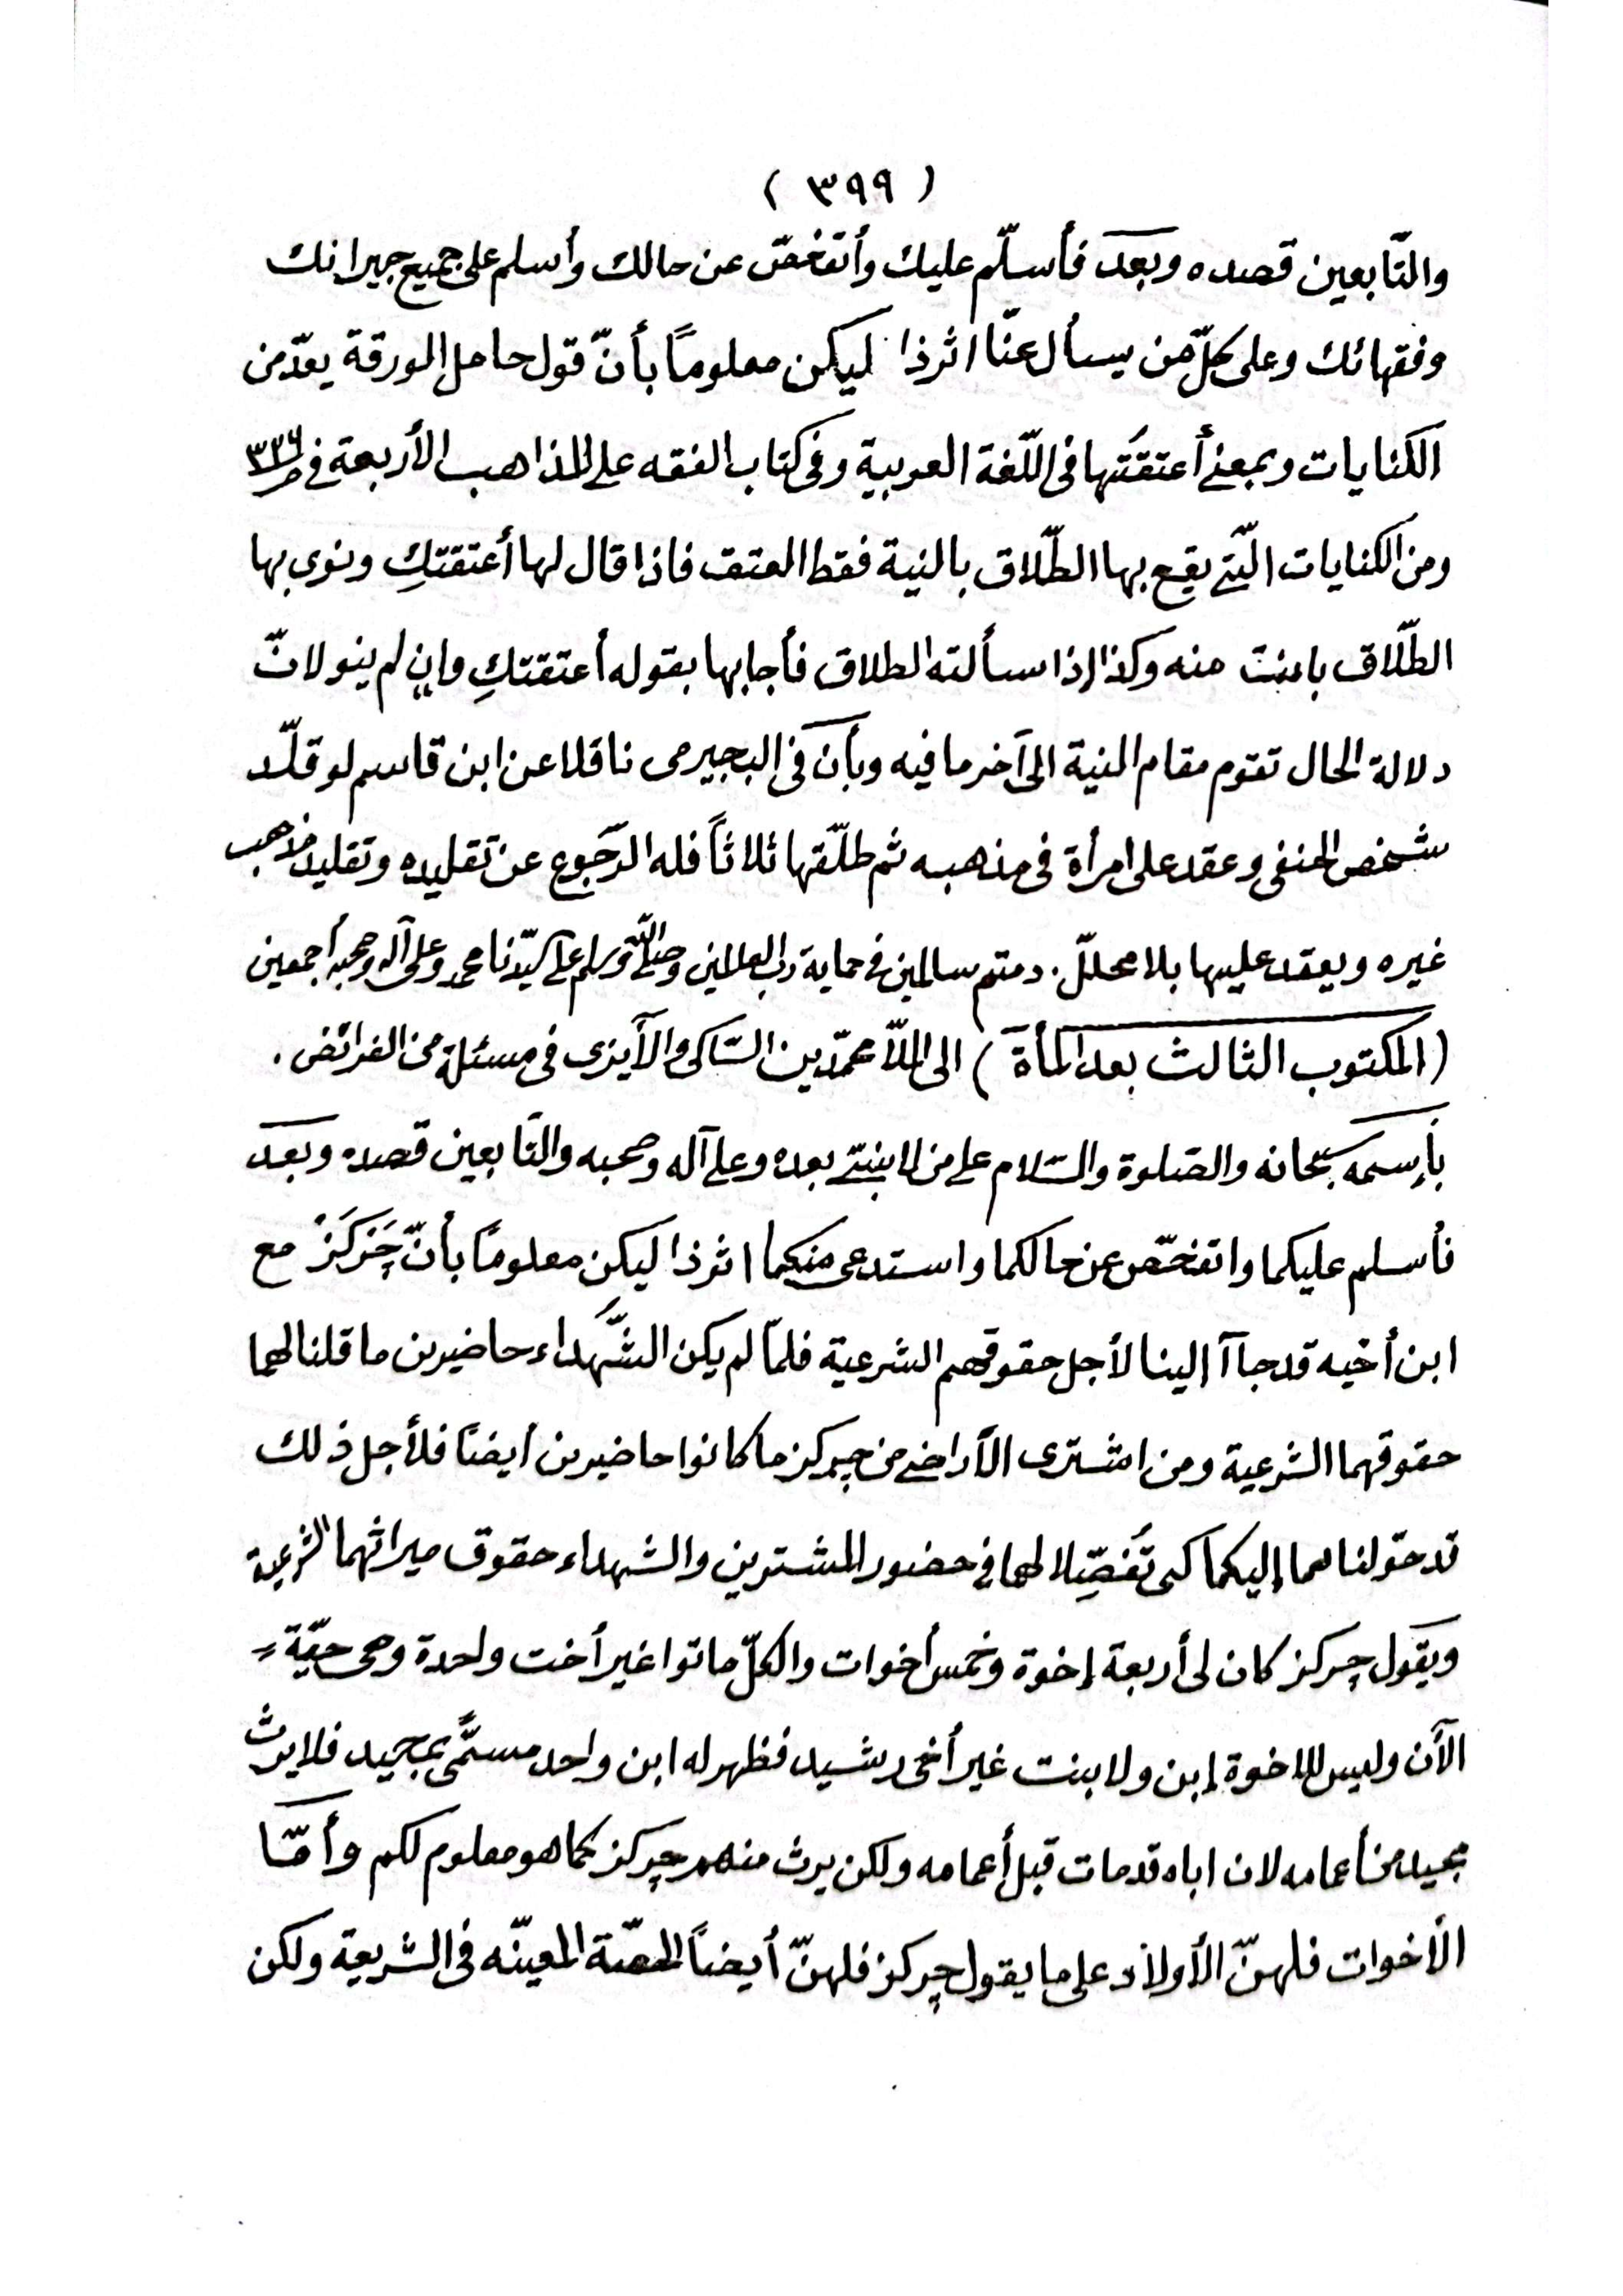 ( ٣٩٩ )
والتّابعين قصده وبعد فأسلّم عليك وأتفحّص عن حالك وأسلم على جميع جيرانك
وفقهائك وعلى كلّ من يسأل عنّا اثرذا ليكن معلوماً بأنّ قول حامل الورقة يعدّ من
الكنايات وبمعنى أعتقتها فى اللّغة العربية وفى كتاب الفقه على المذاهب الأربعة فى
ومن الكنايات الّتى يقع بها الطّلاق بالنية فقط العتق فاذا قال لها أعتقتكِ ونوى بها
الطّلاق بانت منه وكذا إذا سألته الطلاق فأجابها بقوله أعتقتكِ وإن لم ينو لانّ
دلالة الحال تقوم مقام النية الى آخر ما فيه وبأن فى البجيرمى ناقلا عن ابن قاسم لو قلّد
شخص الحنفى وعقد على امرأة فى مذهبه ثم طلّقها ثلاثاً فله الرّجوع عن تقليده وتقليد مذهب
غيره ويعقد عليها بلا محلّل. دمتم سالمين فى حماية رب العالمين وصلى الله وسلم على سيّدنا محمد وعلى آله وصحبه أجمعين
(المكتوب الثالث بعد المأة) الى الملّا محمّدين السّاكى والآيزى فى مسئلة من الفرائض.
بإسمه سبحانه والصّلوة والسّلام على من لا نبىّ بعده وعلى آله وصحبه والتّابعين قصده وبعد
فأسلم عليكما واتفحّص عن حالكما واستدعى منكما اثرذا ليكن معلوماً بأنّ چَركَز مع
ابن أخيه قد جاآ إلينا لأجل حقوقهم الشرعية فلمّا لم يكن الشّهداء حاضيرين ما قلنا لهما
حقوقهما الشرعية ومن اشترى الآراضى من چركز ما كانوا حاضيرين أيضاً فلأجل ذلك
قد حوّلناهما إليكما كى تُفصِّلا لهما فى حضور المشترين والشهداء حقوق ميراثهما الشرعية
ويقول چركز كان لى أربعة إخوة وخمس أخوات والكلّ ماتوا غير أخت واحدة وهى حيّة =
الآن وليس للاخوة إبن ولا بنت غير أخى رشيد فظهر له ابن واحد مسمًّى بمجيد فلا يرث
مجيد من أعمامه لان اباه قد مات قبل أعمامه ولكن يرث منهم چركز كما هو معلوم لكم وأمّا
الأخوات فلهنّ الأولاد على ما يقول چركز فلهنّ أيضاً الحصّة المعينّه فى الشريعة ولكن